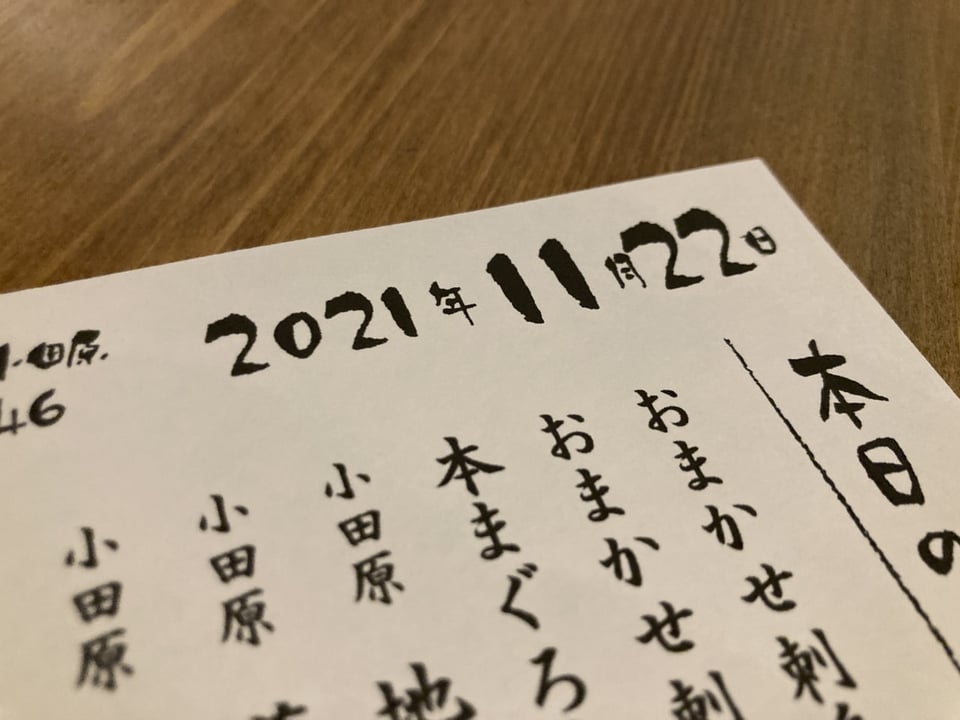 2021年11月22日
本日の
おまかせ刺
おまかせ刺
本まぐろ
小田原 地
小田原
小田原
小田原
46